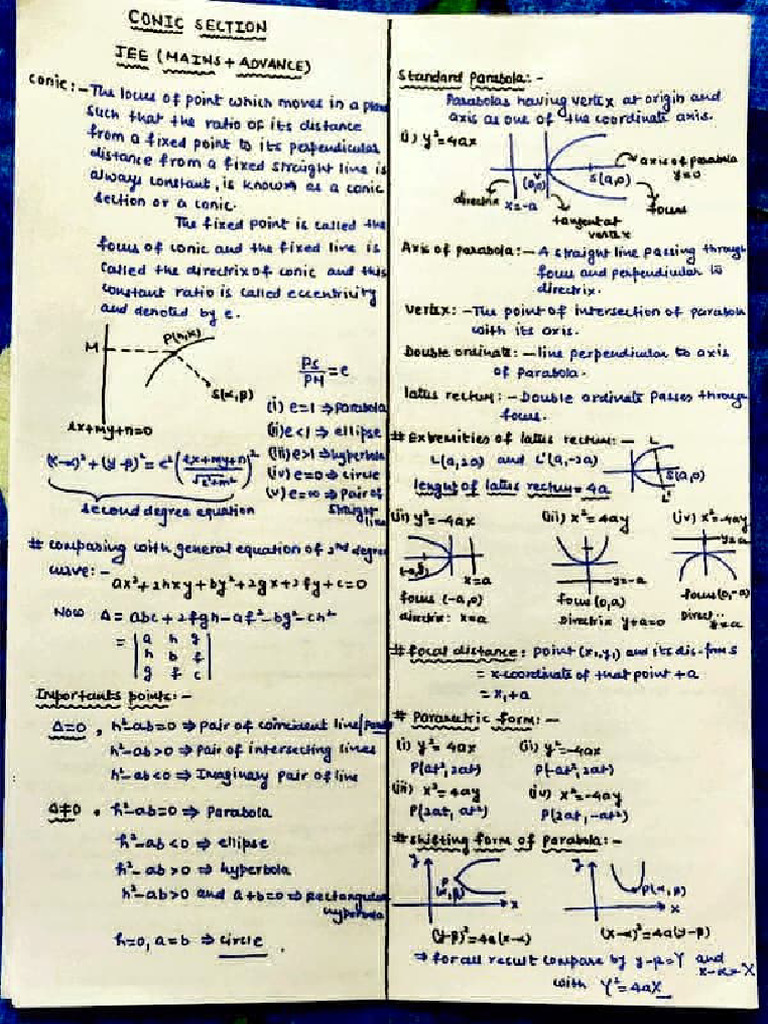 CONIC SECTION
JEE (MAINS + ADVANCE)
Conic:- The locus of point which moves in a plane
such that the ratio of its distance
from a fixed point to its perpendicular
distance from a fixed straight line is
always constant, is known as a conic
section or a conic.
The fixed point is called the
focus of conic and the fixed line is
called the directrix of conic and this
constant ratio is called eccentricity
and denoted by e.
M P(h,k)
S(α,β)
lx+my+n=0
PS/PM = e
(i) e=1 ⇒ parabola
(ii) e<1 ⇒ ellipse
(iii) e>1 ⇒ hyperbola
(iv) e=0 ⇒ circle
(v) e=∞ ⇒ pair of
straight line
(x-α)²+(y-β)² = e²(lx+my+n/√l²+m²)²
second degree equation
# comparing with general equation of 2nd degree
curve:-
ax²+2hxy+by²+2gx+2fy+c=0
Now Δ = abc+2fgh-af²-bg²-ch²
= |a h g|
|h b f|
|g f c|
Importants points:-
Δ=0, h²-ab=0 ⇒ pair of coincident line/
h²-ab>0 ⇒ pair of intersecting lines
h²-ab<0 ⇒ Imaginary pair of line
Δ≠0, h²-ab=0 ⇒ Parabola
h²-ab<0 ⇒ ellipse
h²-ab>0 ⇒ hyperbola
h²-ab>0 and a+b=0 ⇒ rectangular
hyperbola
h=0, a=b ⇒ circle.
Standard Parabola:-
Parabolas having vertex at origin and
axis as one of the coordinate axis.
(i) y²=4ax
axis of parabola
y=0
V
(0,0) S(a,0)
directrix x=-a focus
tangent at
vertex
Axis of parabola:- A straight line passing through
focus and perpendicular to
directrix.
Vertex:- The point of intersection of parabola
with its axis.
Double ordinate:- line perpendicular to axis
of parabola.
latus rectum:- Double ordinate passes through
focus.
# Extremities of latus rectum:-
L(a,2a) and L'(a,-2a)
L
S(a,0)
L'
lenght of latus rectum=4a
(ii) y²=-4ax (iii) x²=4ay (iv) x²=-4ay
y=a
x=a y=-a
focus (-a,0) focus (0,a) focus (0,-a)
directrix: x=a Directrix y+a=0 Direc.. y=a
# focal distance: point (x₁,y₁) and its dis. from S
= x-coordinate of that point +a
= x₁+a
# Parametric form:-
(i) y²=4ax (ii) y²=-4ax
P(at²,2at) P(-at²,2at)
(iii) x²=4ay (iv) x²=-4ay
P(2at,at²) P(2at,-at²)
# Shifting form of Parabola:-
y y
P
(α,β) P(α,β)
x x
(y-β)²=4a(x-α) (x-α)²=4a(y-β)
⇒ for all result compare by y-β=Y and
x-α=X
with Y²=4aX